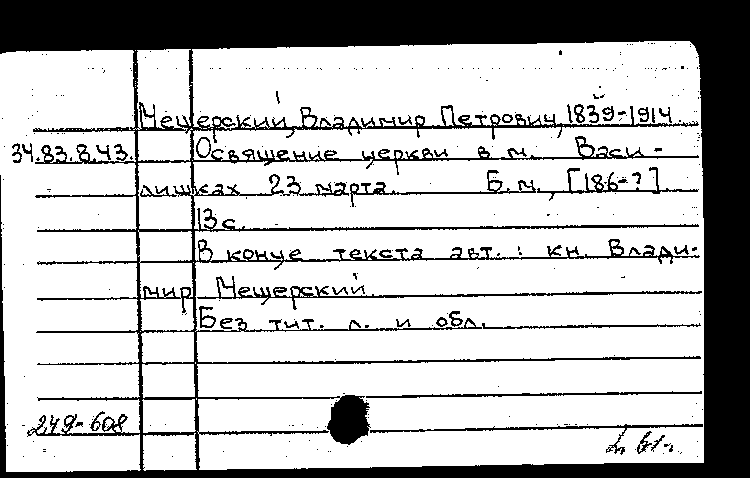 Мещерский, Владимир Петрович, 1839-1914
34.83.8.43. Освящение церкви в м. Васи-
лишках 23 марта. Б.м., [186-?].
13 с.
В конце текста авт.: кн. Влади-
мир Мещерский.
Без тит. л. и обл.
249-608